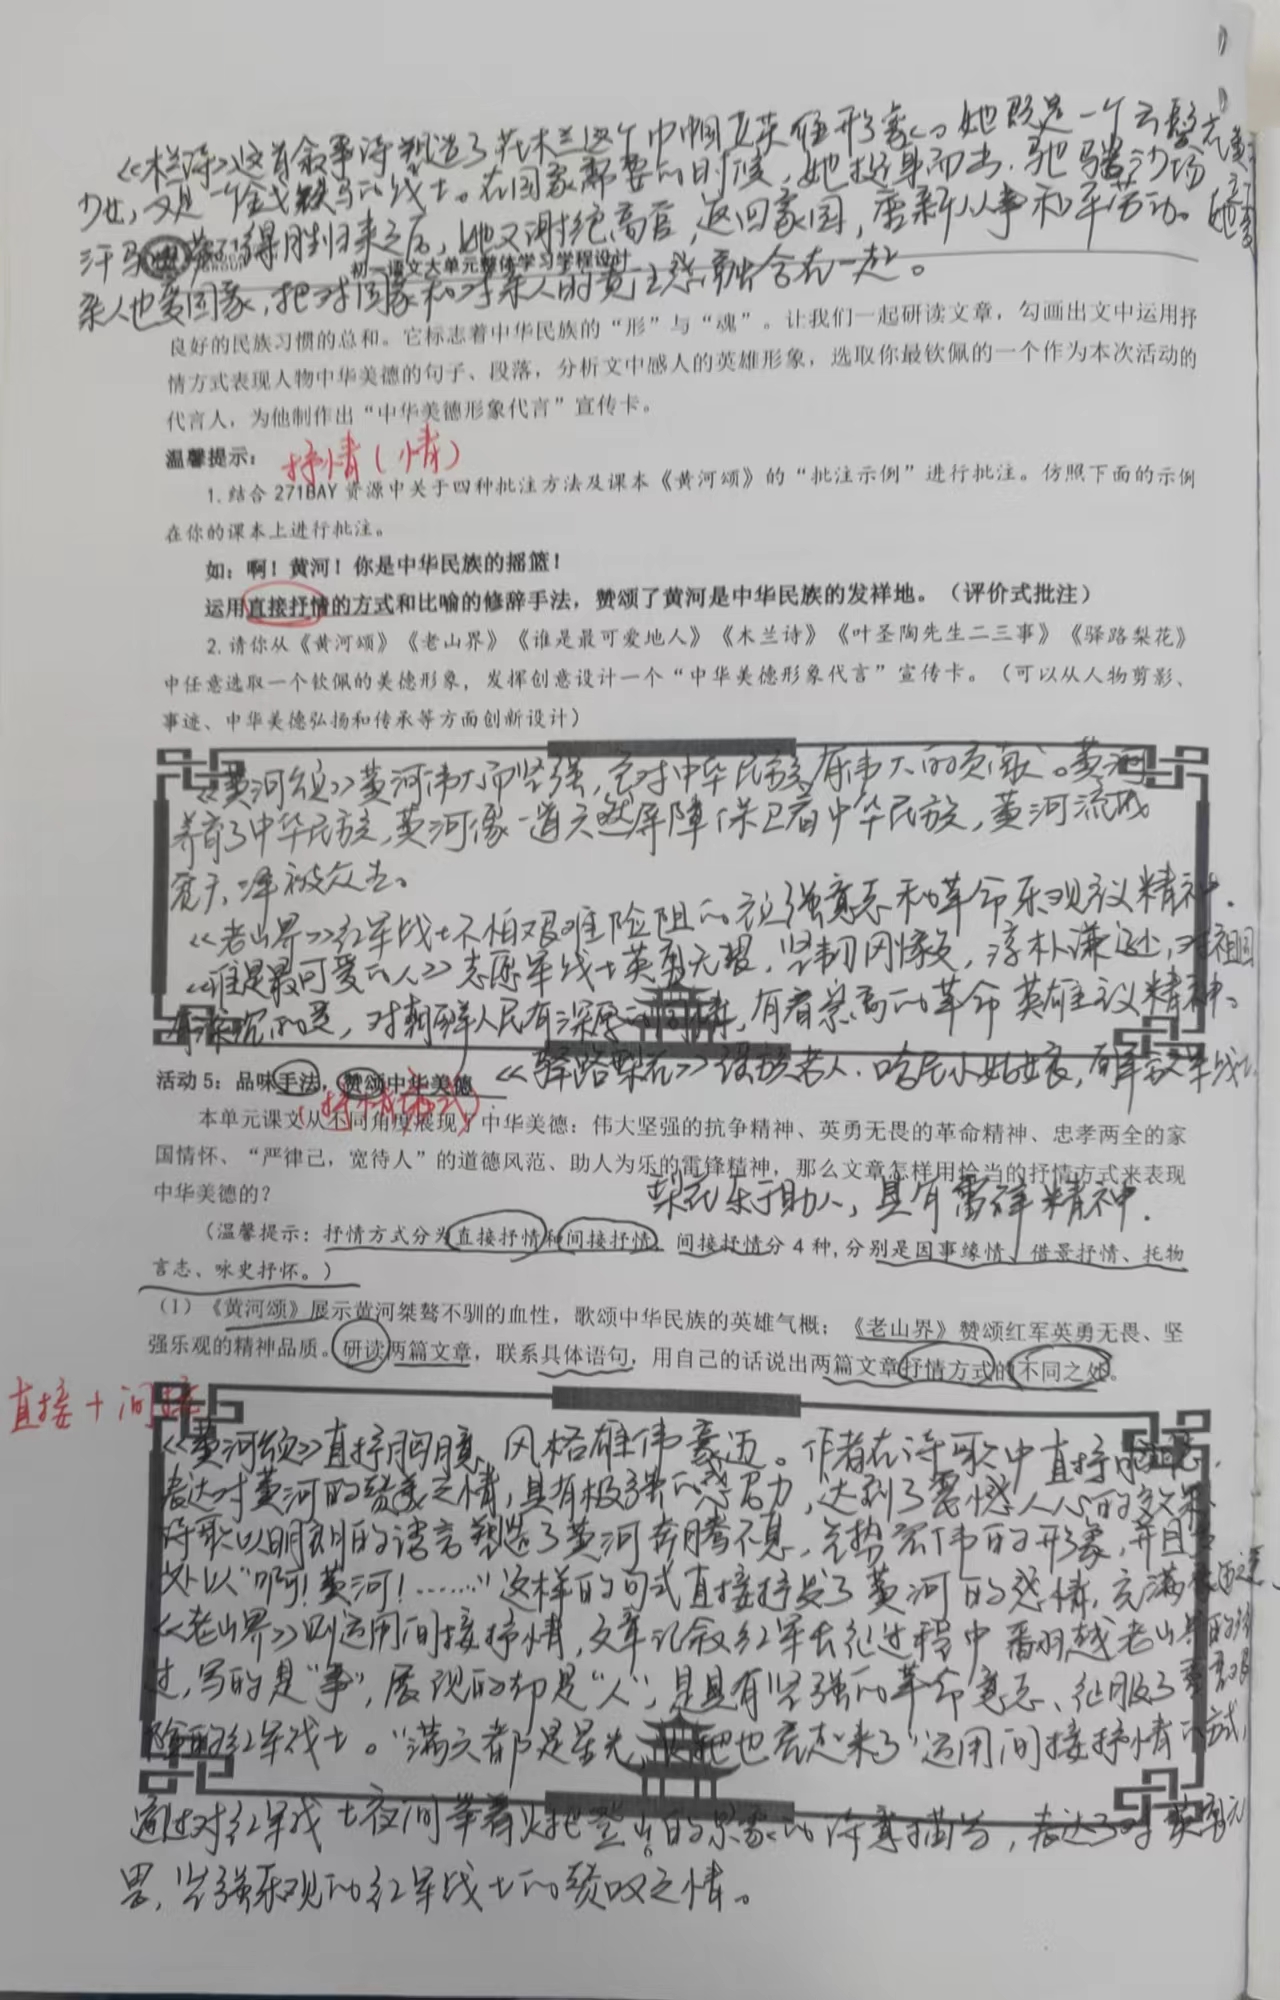 《木兰诗》这首叙事诗塑造了花木兰这个巾帼英雄形象。她既是一个云鬓花黄
少女，又是一个金戈铁马的战士。在国家需要的时候，她挺身而出，驰骋沙场
汗马功劳，得胜归来之后，她又谢绝高官，返回家园，重新从事和平劳动。她爱
初一语文大单元整体学习学程设计
亲人也爱国家，把对国家和对亲人的责任感融合在一起。
良好的民族习惯的总和。它标志着中华民族的“形”与“魂”。让我们一起研读文章，勾画出文中运用抒
情方式表现人物中华美德的句子、段落，分析文中感人的英雄形象，选取你最钦佩的一个作为本次活动的
代言人，为他制作出“中华美德形象代言”宣传卡。
温馨提示：
抒情（情）
1.结合271BAY资源中关于四种批注方法及课本《黄河颂》的“批注示例”进行批注。仿照下面的示例
在你的课本上进行批注。
如：啊！黄河！你是中华民族的摇篮！
运用直接抒情的方式和比喻的修辞手法，赞颂了黄河是中华民族的发祥地。（评价式批注）
2.请你从《黄河颂》《老山界》《谁是最可爱地人》《木兰诗》《叶圣陶先生二三事》《驿路梨花》
中任意选取一个钦佩的美德形象，发挥创意设计一个“中华美德形象代言”宣传卡。（可以从人物剪影、
事迹、中华美德弘扬和传承等方面创新设计）
《黄河颂》黄河伟大而坚强，它对中华民族有伟大的贡献。黄河
养育了中华民族，黄河像一道天然屏障保卫着中华民族，黄河流域
宽广，泽被众生。
《老山界》红军战士不怕艰难险阻的顽强意志和革命乐观主义精神。
《谁是最可爱的人》志愿军战士英勇无畏，坚韧刚毅，淳朴谦逊，对祖国
有深沉的爱，对朝鲜人民有深厚的同情，有着崇高的革命英雄主义精神。
《驿路梨花》瑶族老人、哈尼小姑娘，解放军战士
活动5：品味手法，赞颂中华美德
（抒情方式）
本单元课文从不同角度展现了中华美德：伟大坚强的抗争精神、英勇无畏的革命精神、忠孝两全的家
国情怀、“严律己，宽待人”的道德风范、助人为乐的雷锋精神，那么文章怎样用恰当的抒情方式来表现
中华美德的？
梨花乐于助人，具有雷锋精神．
（温馨提示：抒情方式分为直接抒情和间接抒情，间接抒情分4种，分别是因事缘情、借景抒情、托物
言志、咏史抒怀。）
（1）《黄河颂》展示黄河桀骜不驯的血性，歌颂中华民族的英雄气概；《老山界》赞颂红军英勇无畏、坚
强乐观的精神品质。研读两篇文章，联系具体语句，用自己的话说出两篇文章抒情方式的不同之处。
直接＋间接
《黄河颂》直抒胸臆，风格雄伟豪迈。作者在诗歌中直抒胸臆，
表达对黄河的赞美之情，具有极强的感召力，达到了震憾人心的效果
诗歌以明朗的语言塑造了黄河奔腾不息，气势宏伟的形象，并且
处以“啊！黄河！……”这样的句式直接抒发了黄河的感情，充满
《老山界》则运用间接抒情，文章记叙红军长征过程中翻越老山界的经
过，写的是“事”，展现的却是“人”，是具有坚强的革命意志、征服了重重艰
险的红军战士。“满天都是星光，火把也亮起来了”运用间接抒情的方式，
通过对红军战士夜间举着火把登山的景象的详尽描写，表达了对英勇无
畏，坚强乐观的红军战士的赞叹之情。